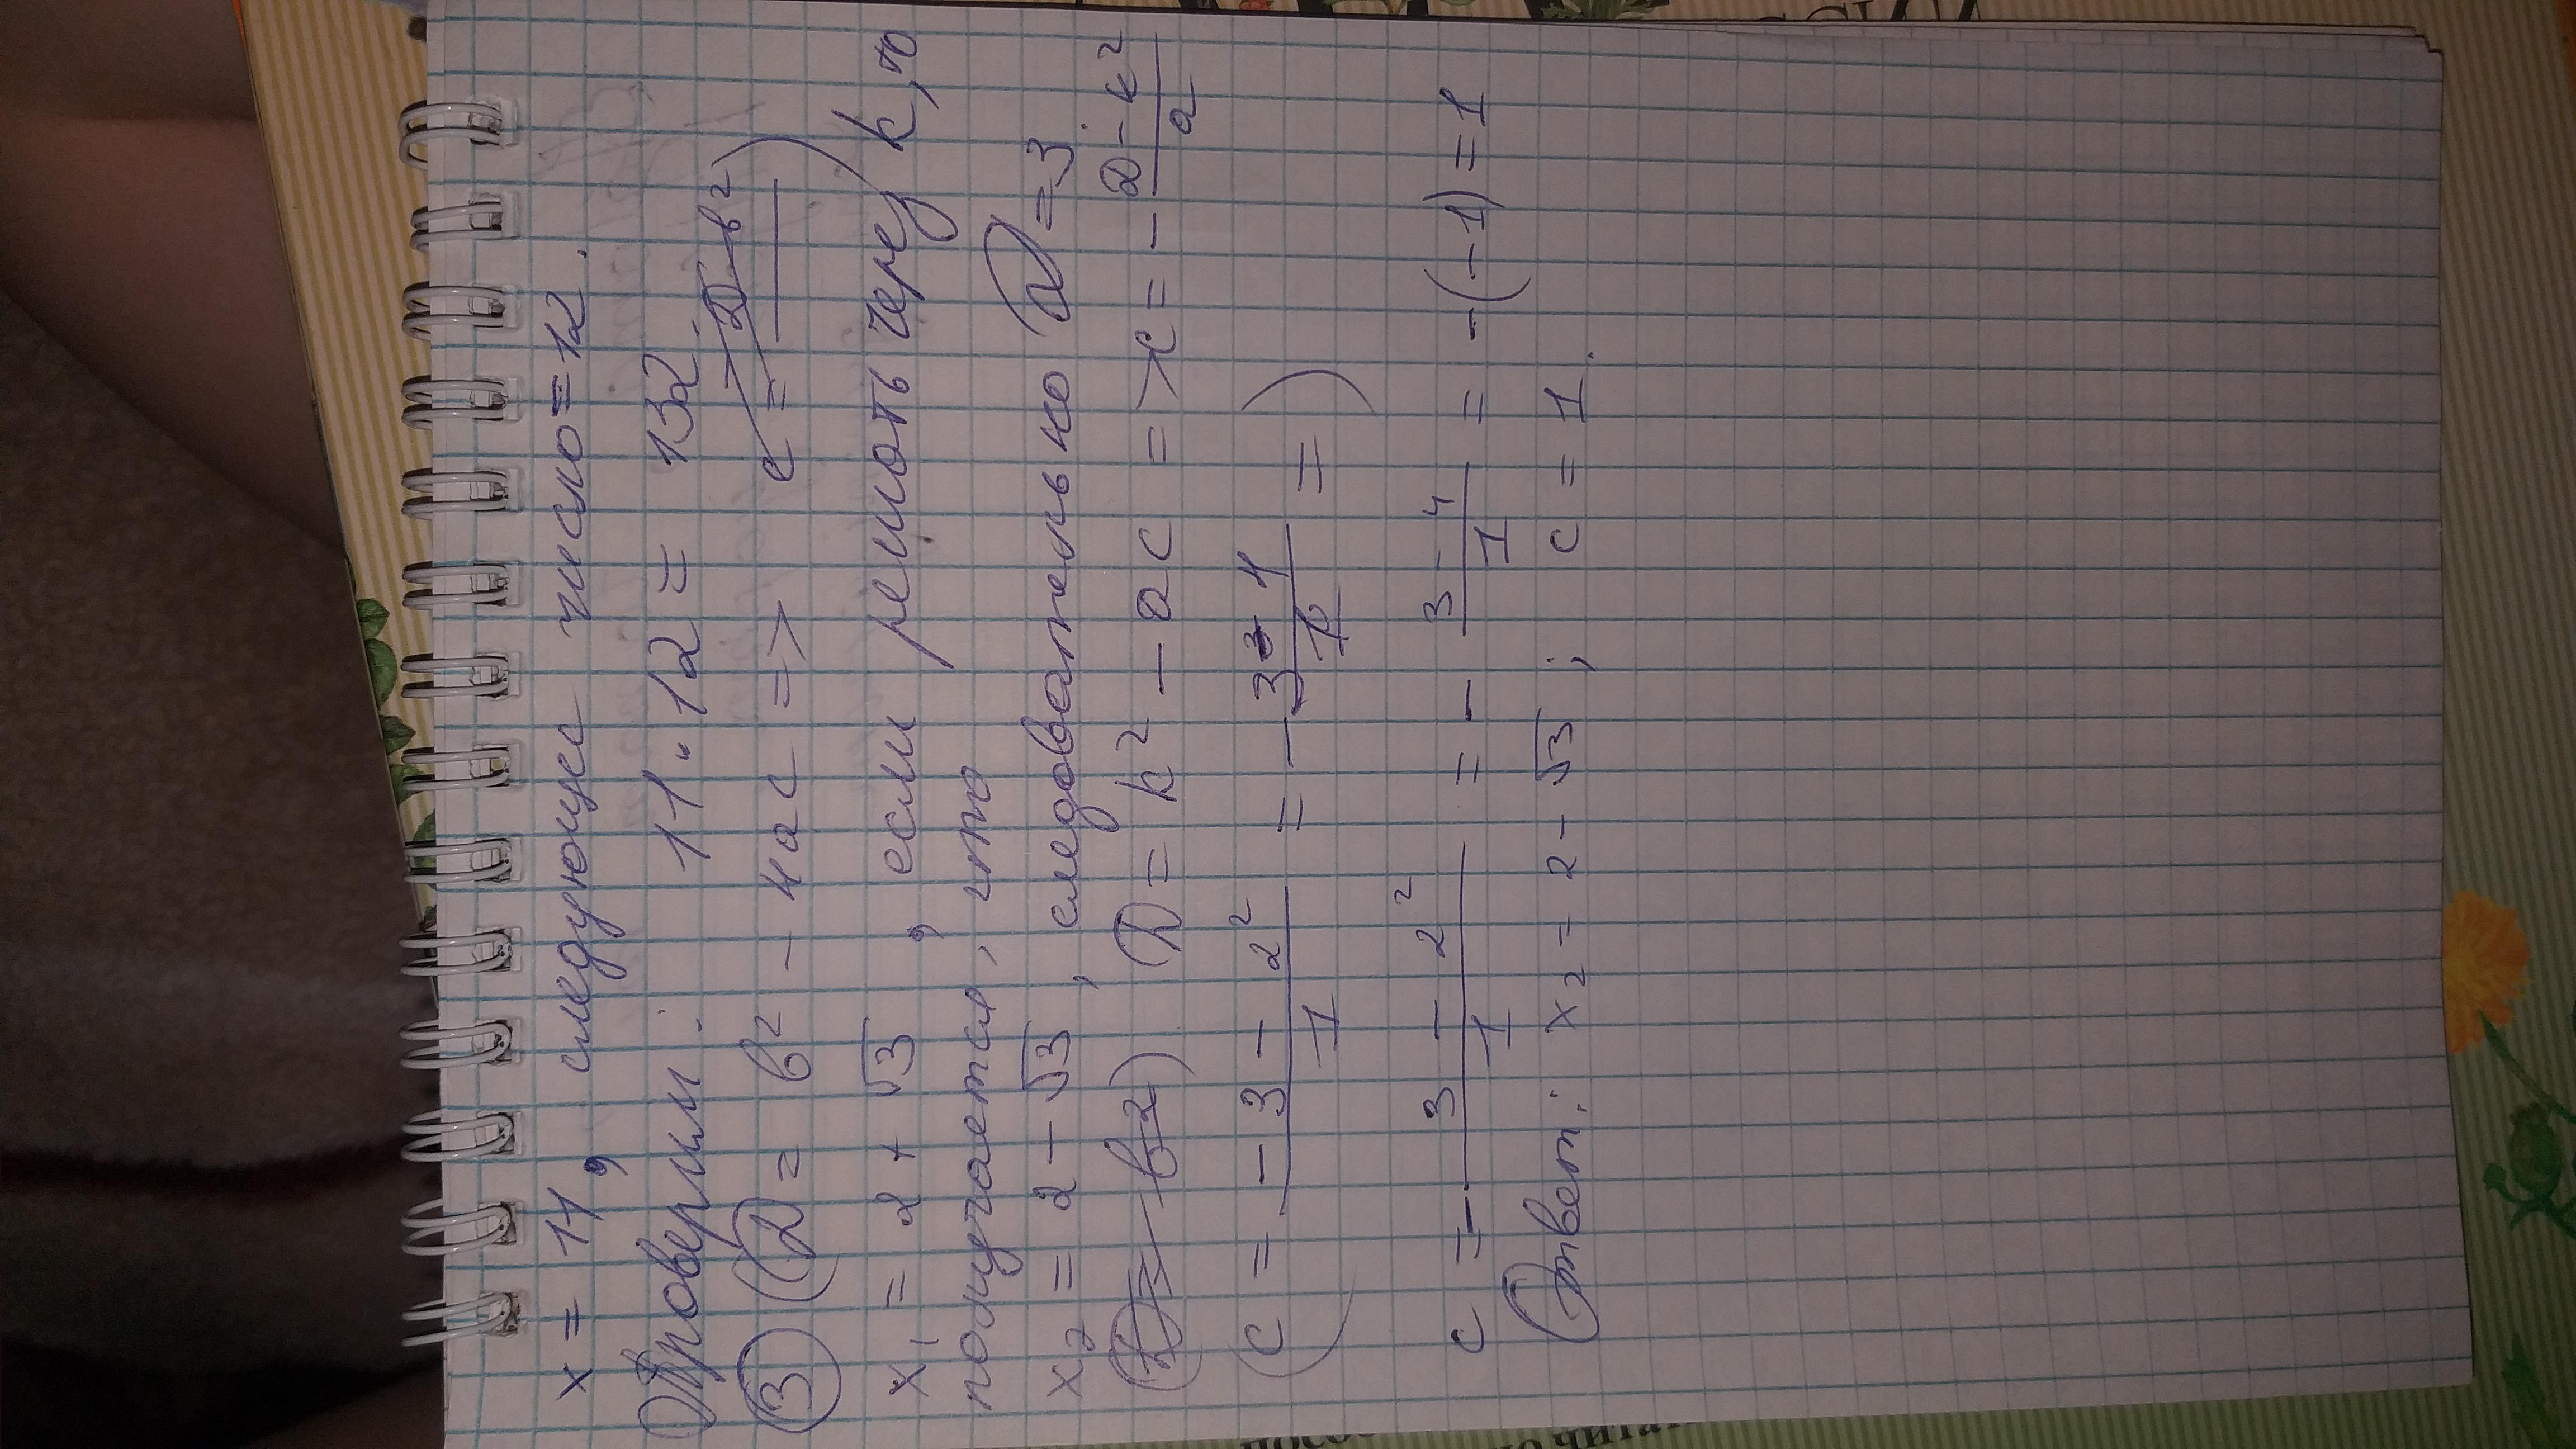 x = 11, следующее число = 12.
Проверим: 11 · 12 = 132.
③ D = b² - 4ac => c = D - b²
x₁ = 2 + √3, если решать через k, то
получается, что
x₂ = 2 - √3, следовательно D = 3
D = b² D = k² - ac => c = - D - k² / a
c = - 3 - 2² / 1 = - 3 - 1 / 1 =
c = - 3 - 2² / 1 = - 3 - 4 / 1 = -(-1) = 1
Ответ: x₂ = 2 - √3; c = 1.